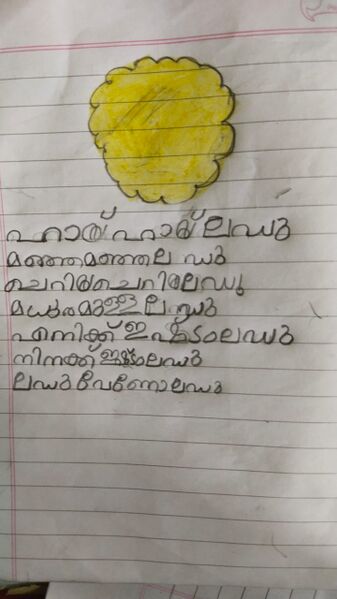 ഹായ് ഹായ് ലഡു
മഞ്ഞമഞ്ഞല ഡു
ചെറിയചെറിയലഡു
മധുരമുള്ള ലഡു
എനിക്ക് ഇഷ്ടംലഡു
നിനക്ക് ഇഷ്ടംലഡു
ലഡുവേണോലഡു